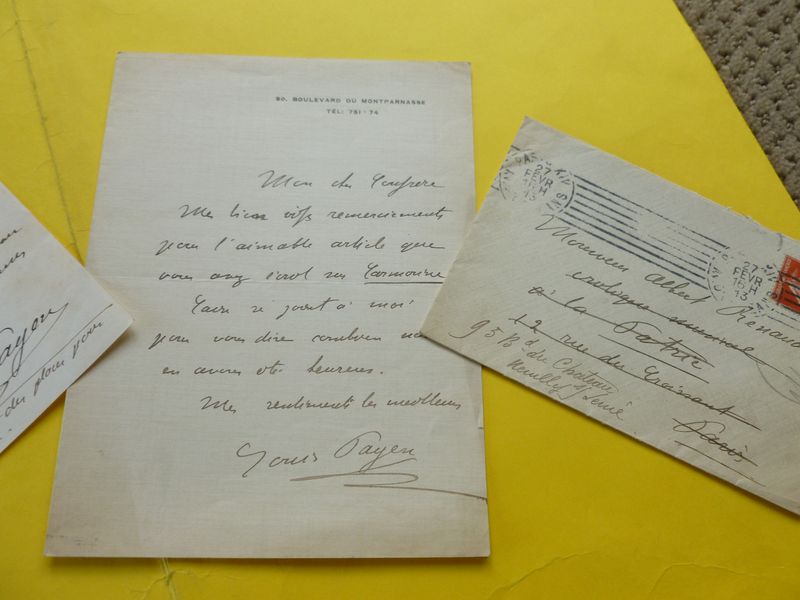 90, BOULEVARD DU MONTPARNASSE
TÉL: 751-74
Mon cher Confrère
Mes bien vifs remerciements
pour l'aimable article que
vous avez écrit sur
se joint à moi
pour vous dire combien nous
en avons été heureux.
Mes sentiments les meilleurs
Louis Payen
Payen
du plour pour
27
FEVR
27
FEVR
15 H
13
Monsieur Albert Renaud
critique musical
à la Patrie
12 rue du Croissant
Paris
95 Bd du Chateau
Neuilly s/ Seine